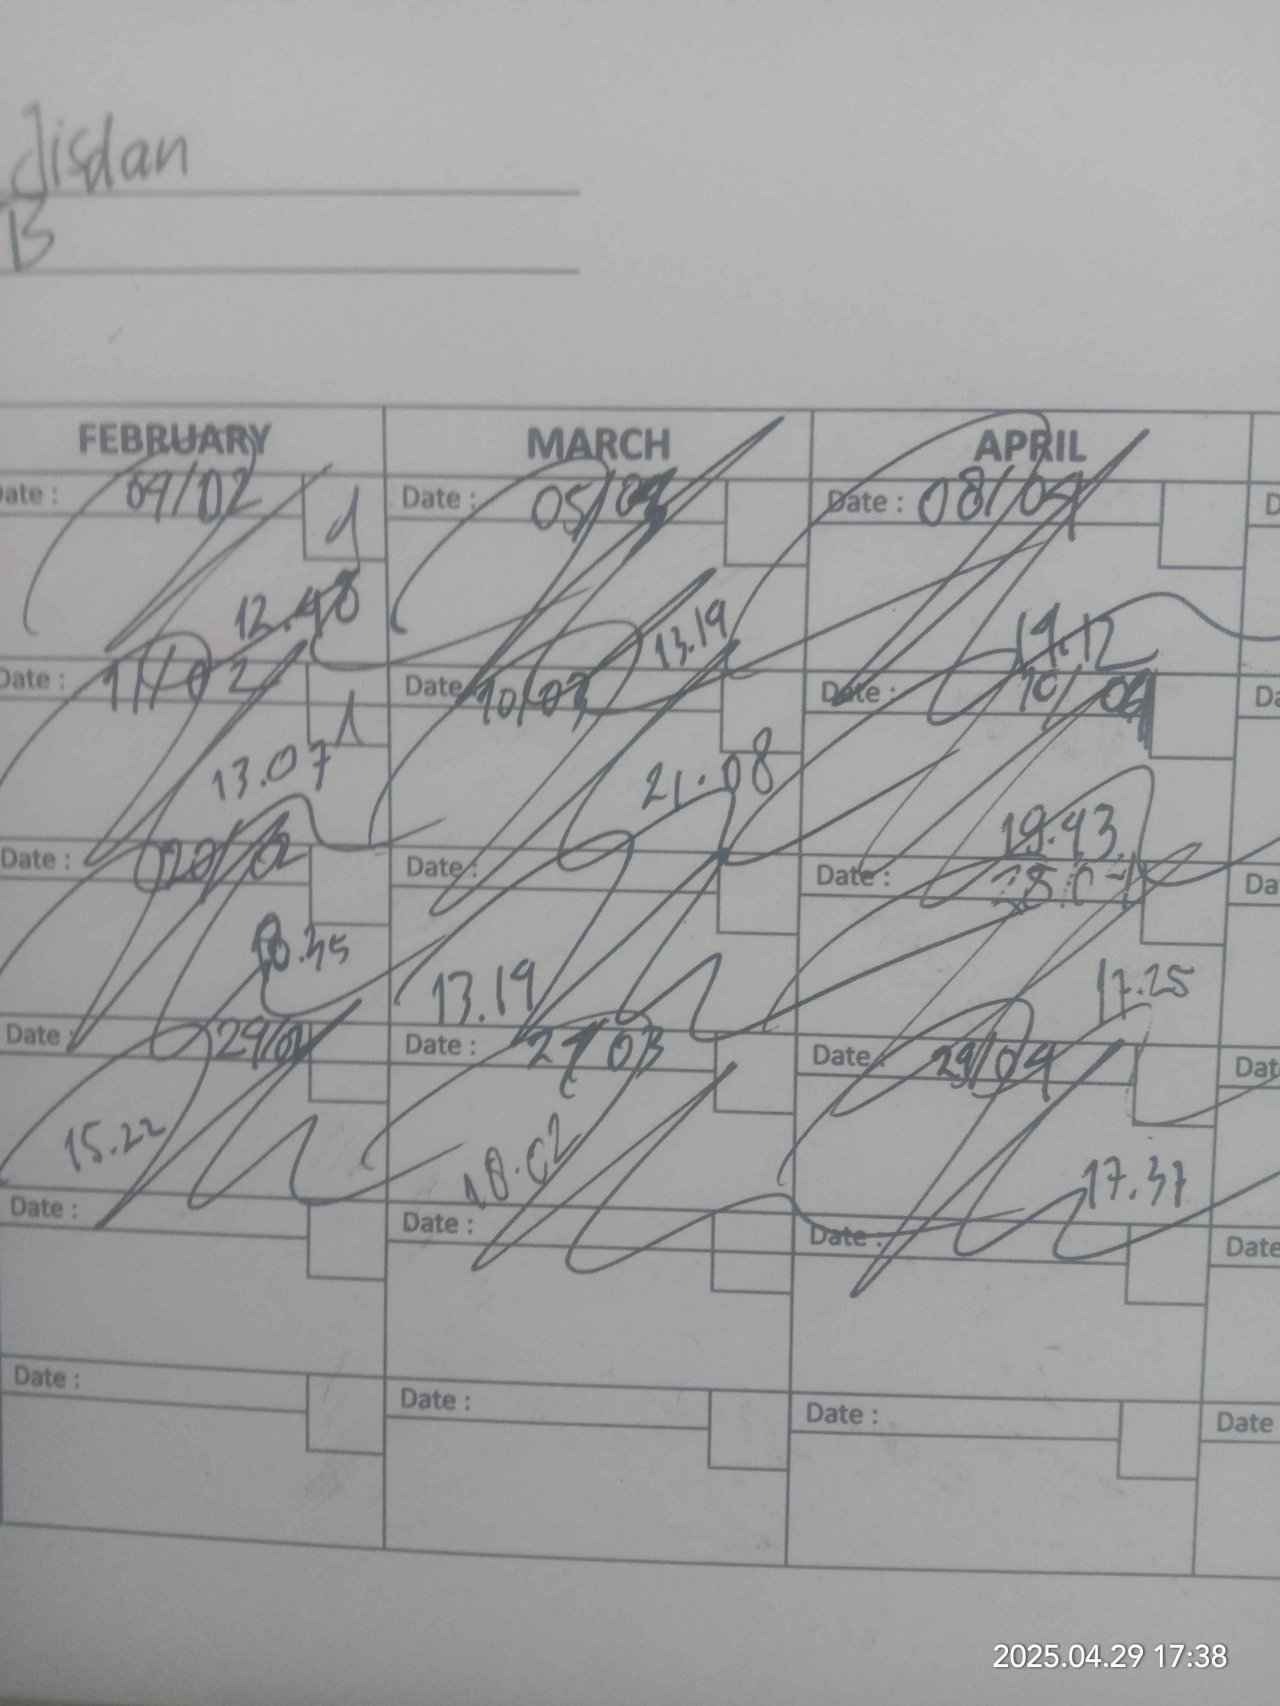 Jisdan
B
FEBRUARY MARCH APRIL
Date : 09/02 1 Date : 05/03 Date : 08/04
12.48 13.19 19.12
Date : 11/02 1 Date 10/03 Date : 10/04
13.07 21.08 19.43
Date : 20/02 Date : Date : Da
18.35 13.19 17.25
Date : Date : 27/03 Date : 29/04 Dat
15.22 18.02 17.37
Date : Date : Date : Date
Date : Date : Date : Date
2025.04.29 17:38